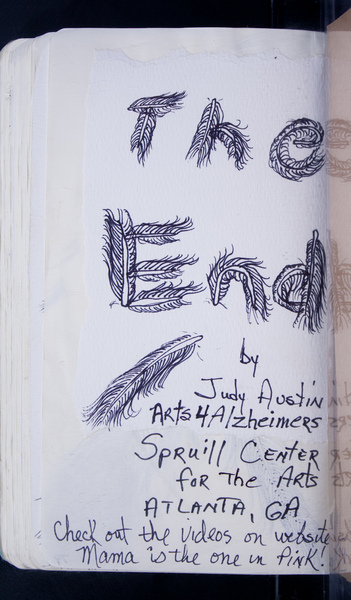 The
End
by
Judy Austin
Arts 4 Alzheimers
Spruill Center
for the Arts
ATLANTA, GA
Check out the videos on website
Mama is the one in Pink!